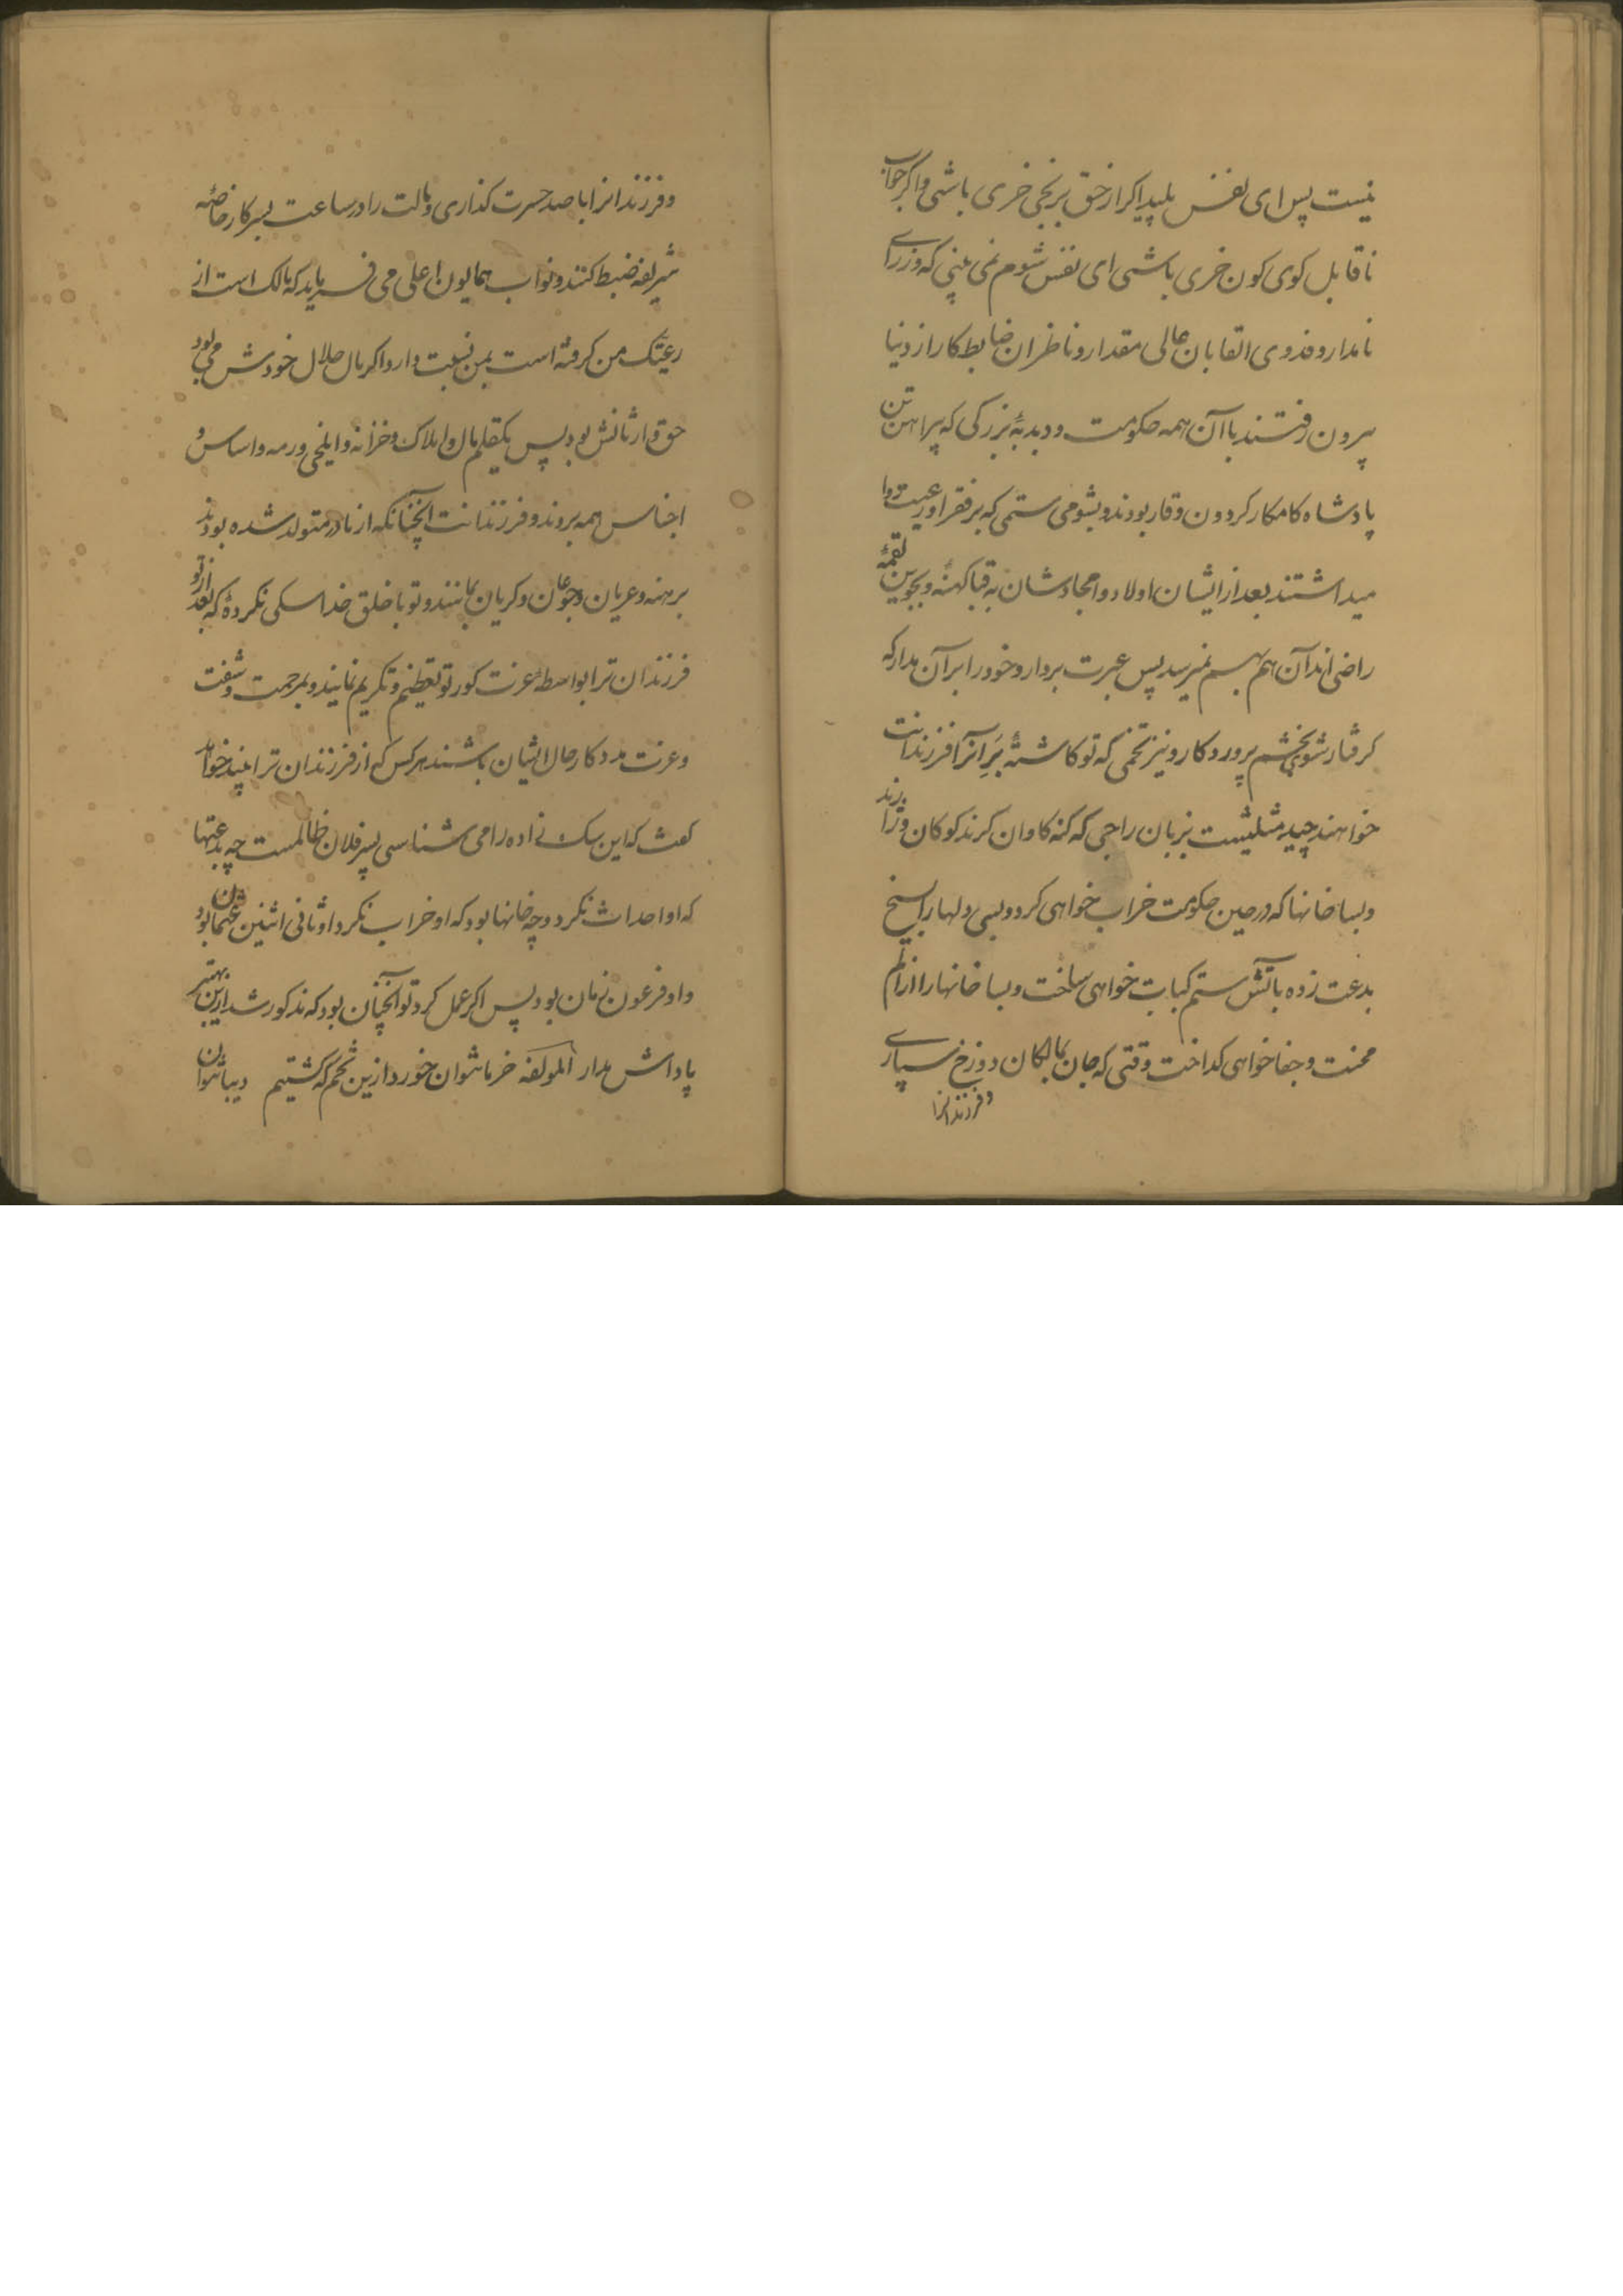 نیست پس ای نفس پلید اکر از حق برنجی خری باشی و اکر جواب
ناقابل کوی کون خری باشی ای نفس شوم نمی بینی که وزرای
نامدار و فدوی القابان عالی مقدار و ناظران ضابط کار از دنیا
بیرون رفتند با آن همه حکومت و دبدبهٔ بزرکی که پیراهن تن
پادشاه کامکار کردون وقار بودند و بشومی ستمی که بر فقرا و رعیت روا
میداشتند بعد از ایشان اولاد و امجادشان به قبا کهنه و بجوین لقمهٔ
راضی اند آن هم بهم نمیرسد پس عبرت بردار و خود را بر آن مدار که
کرفتار شوی بخشم پروردکار و نیز تخمی که تو کاشتهٔ بَرِ آنرا فرزندانت
خواهند چید مثلیست بزبان راجی که کنه کاوان کرند کوکان وژا رند
و بسا خانها که در حین حکومت خراب خواهی کرد و بسی دلها را بسیخ
بدعت زده بآتش ستم کباب خواهی ساخت و بسا خانها را از ظلم
محنت و جفا خواهی کداخت وقتی که جان بمالکان دوزخ سپاری
و فرزندانرا
و فرزندانرا با صد حسرت کذاری و مالت را در ساعت بسرکار خاصهٔ
شریفه ضبط کنند و نواب همایون اعلی می فرماید که مالک است از
رعیتک من کرفته است بمن نسبت دارد و اکر مال حلال خودش می بود
حق وارثانش بود پس یکقلم مال و املاک و خزانه و ایلخی و رمه و اساس و
اجناس همه بروند و فرزندانت آنچنانکه از مادر متولد شده بودند
برهنه و عریان و جوعان و کریان بمانند و تو با خلق خدا سکی نکردهٔ که بعد از تو
فرزندان ترا بواسطهٔ عزت کور تو تعظیم و تکریم نمایند و بمرحمت و شفقت
و عزت مددکار حال ایشان باشند هر کس که از فرزندان ترا بیند خواهد
کفت که این سک زاده را می شناسی پسر فلان ظالمست چه بدعتها
که او احداث نکرد و چه خانها بود که او خراب نکرد او ثانی اثنین عثمان بود
و او فرعون زمان بود پس اکر عمل کرد تو آنچنان بود که مذکور شد ازین بهتر
پاداش مدار لمولفه خرما نتوان خورد ازین تخم که کشتیم دیبا نتوان